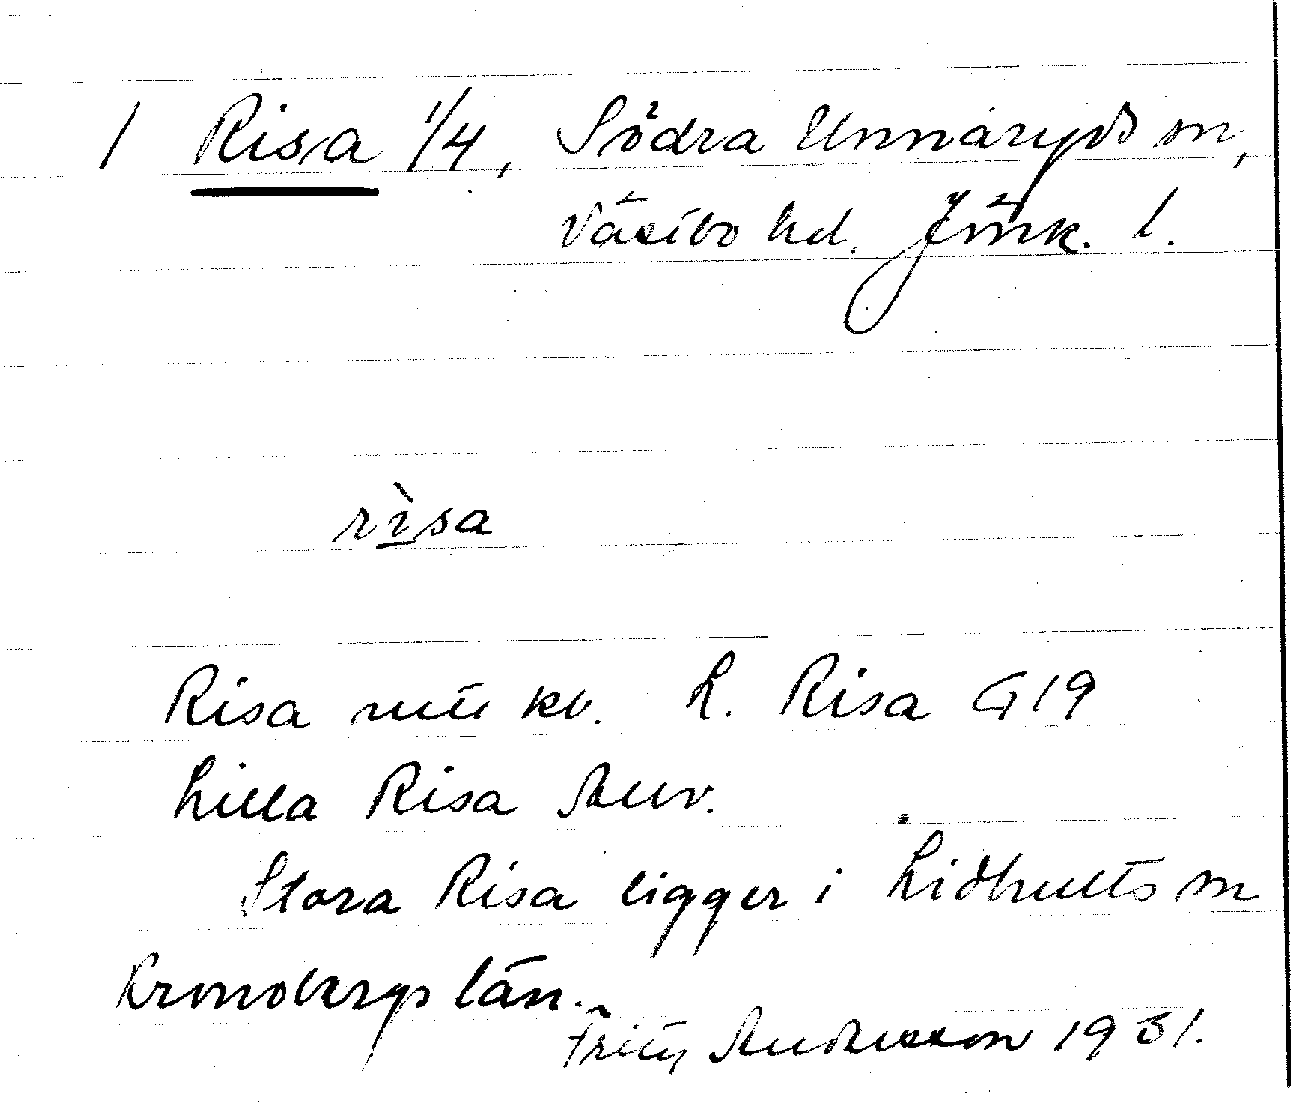 1 Risa 1/4, Södra Unnaryds sn,
Västbo hd. Jönk. l.
rìsa
Risa kv. L. Risa G19
Lilla Risa
Stora Risa ligger i Lidhults sn
Kronobergs län.
Fritz Andersson 1931.